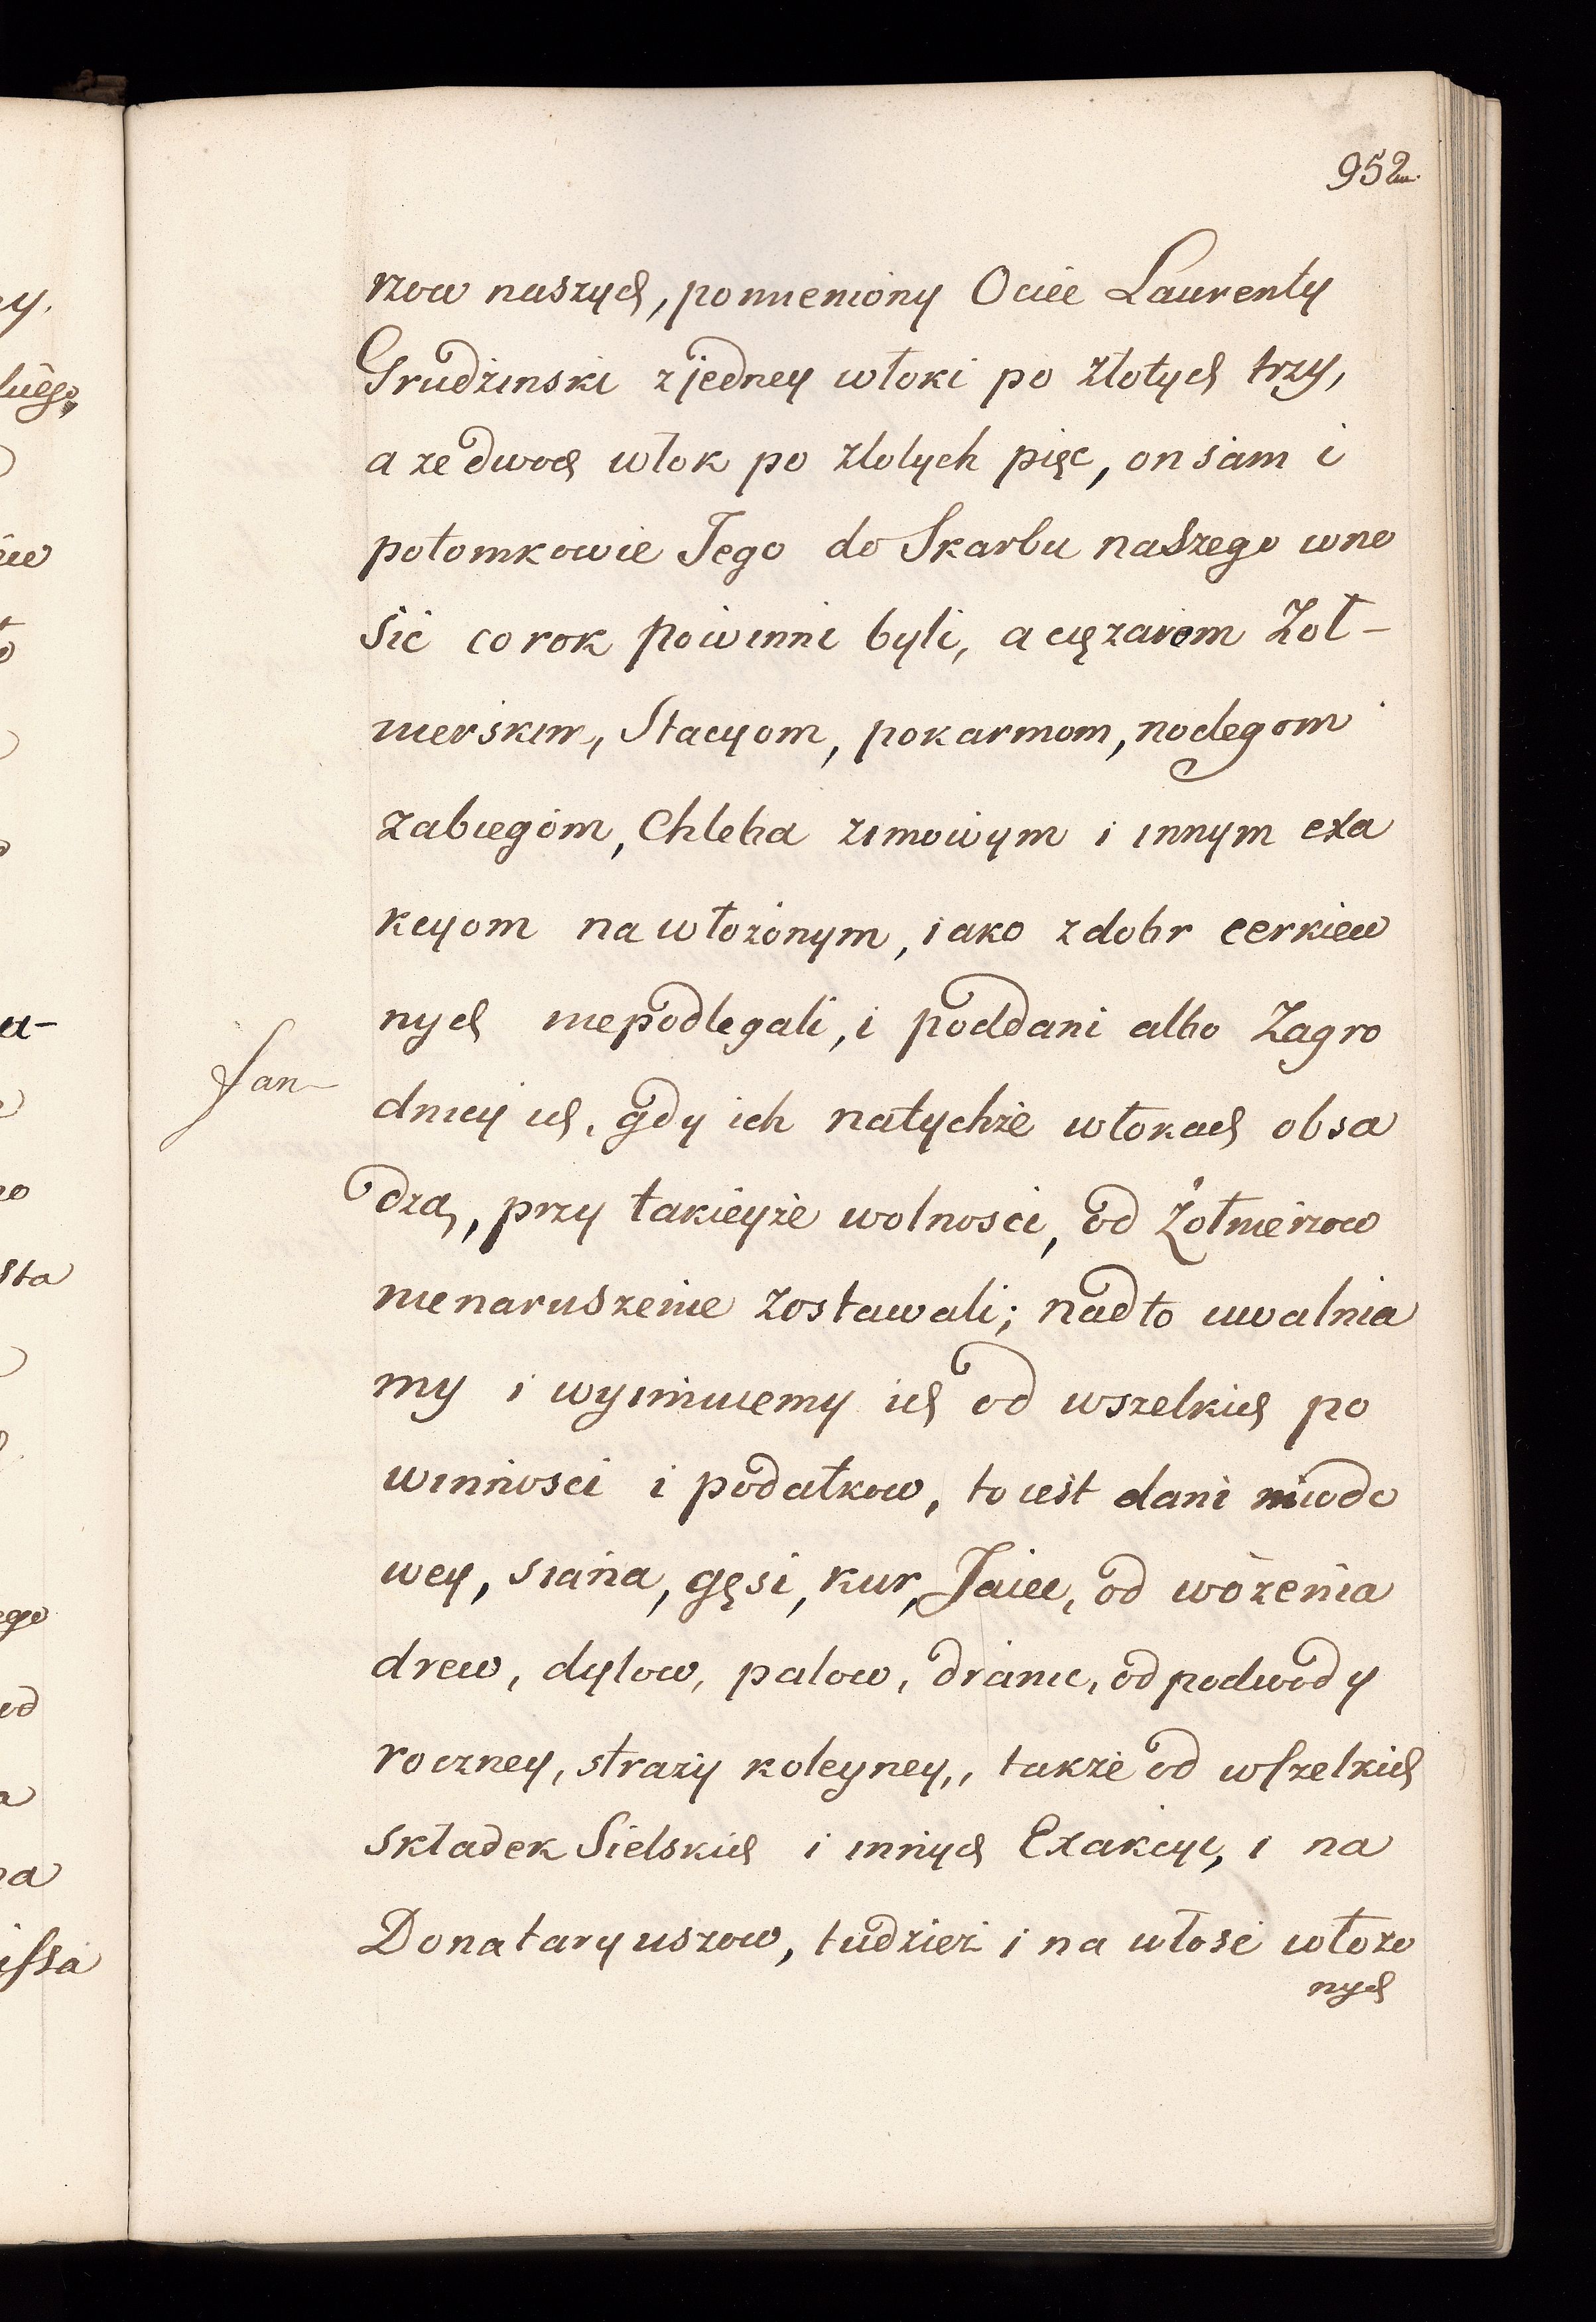 952.
rzow naszych, pomieniony Ociec Laurenty
Grudzinski z jedney włoki po złotych trzy,
a ze dwoch włok po złotych pięc, on sam i
potomkowie Jego do Skarbu naszego wno
sić co rok powinni byli, a cięzarom Zoł-
nierskim, Stacyom, pokarmom, noclegom
zabiegom, Chleba zimowym i innym exa
kcyom na włożonym, iako z dobr cerkiew
nych niepodlegali, i poddani albo Zagro
dnicy ich, gdy ich natychże włokach obsa
dzą, przy takieyże wolnosci, od Żołnierzow
nienaruszenie zostawali; nadto uwalnia
my i wyimuiemy ich od wszelkich po
winnosci i podatkow, to iest dani miodo
wey, siana, gęsi, kur, Jaiec, od wożenia
drew, dylow, palow, dranic, od podwody
roczney, straży koleyney, także od wszelkich
składek Sielskich i innych Exakcyi, i na
Donataryuszow, tudzież i na włość włożo
nych